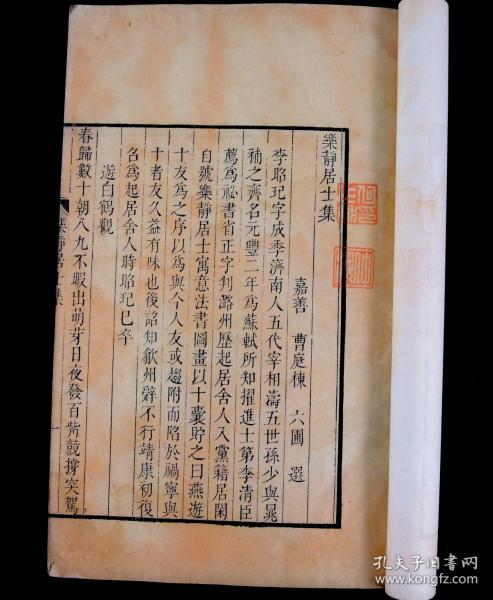 樂靜居士集
嘉善 曹庭棟 六圃 選
李昭玘字成季濟南人五代宰相濤五世孫少與晁
補之齊名元豐二年為蘇軾所知擢進士第李清臣
薦為祕書省正字判潞州歷起居舍人入黨籍居閑
自號樂靜居士寓意法書圖畫以十囊貯之曰燕遊
十友為之序以為與今人友或趨附而陷於禍寧與
十者友久益有味也後詔知歙州辭不行靖康初復
名為起居舍人時昭玘已卒
遊白鶴觀
春歸數十朝八九不暇出萌芽日夜發百觜競撐突駕
樂靜居士集
一
孔夫子旧书网
www.kongfz.com